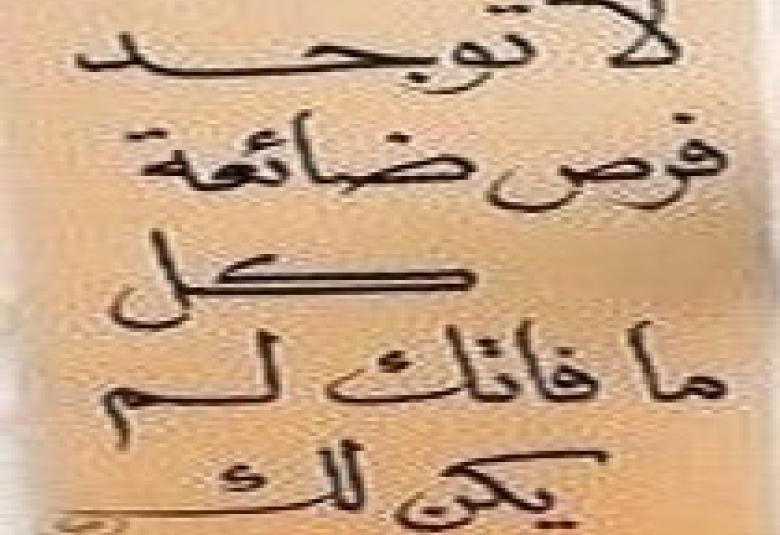 لا توجد
فرص ضائعة
كل
ما فاتك لم
يكن لك